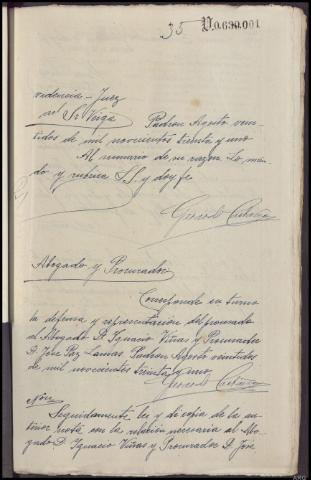 35 V.0.630.001
videncia - Juez
Sr Veiga Padron Agosto vein-
tidos de mil novecientos treinta y uno
Al sumario de su razon. Lo man-
do y rubrica S.S. y doy fe
Abogado y Procurador
Corresponde en turno
la defensa y representación del procesado
al Abogado D. Ignacio Viñas y Procurador
D. Jose Paz Lamas Padron Agosto veintidos
de mil novecientos treinta y uno.
Seguidamente lei y di copia de la an-
terior nota con la relación necesaria al Abo-
gado D. Ignacio Viñas y Procurador D. José
ARG